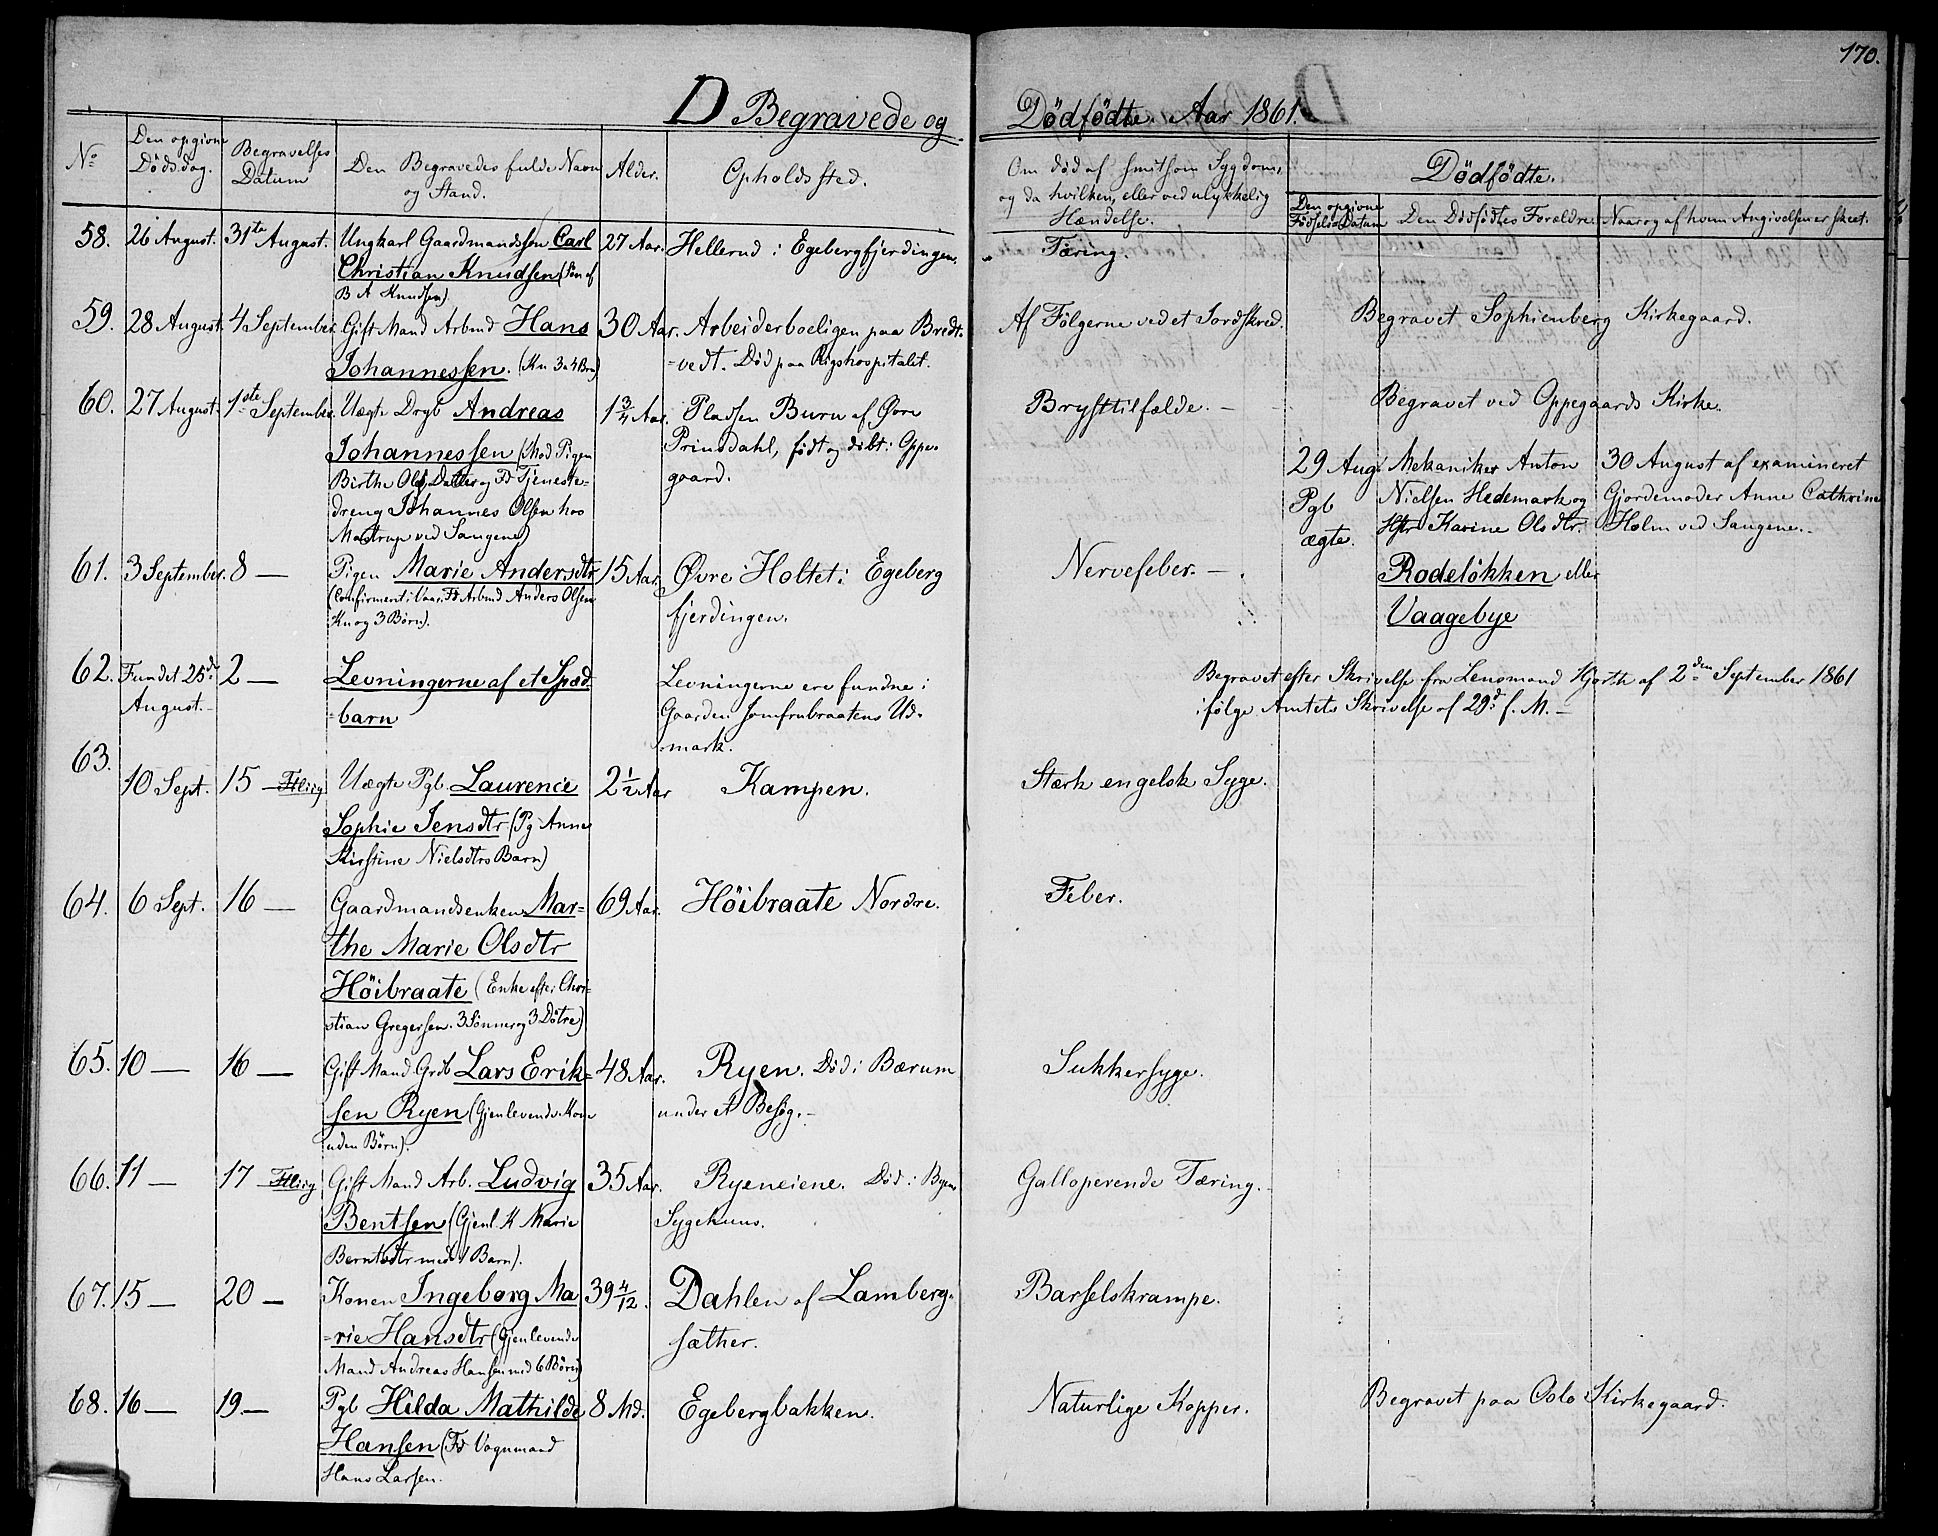 170.
D Begravede og Dödfödte. Aar 1861.
No
Den opgivne Dödsdag.
Begravelses Datum
Den Begravedes fulde Navn og Stand.
Alder.
Opholdssted.
Om död af smitsom Sygdom, og da hvilken, eller ved ulykkelig Hændelse.
Dödfödte.
Den opgivne Födsels Datum
Den Dödfödtes Forældre.
Naar og af hvem Angivelsen er skeet.
58. 26 August. 31te August. Ungkarl Gaardmandssön Carl 27 Aar. Hellerud i Egebergfjerdingen. Tæring.
Christian Knudsen (Sön af
B A Knudsen)
59. 28 August. 4 September. Gift Mand Arbmd Hans 30 Aar. Arbeiderboeligen paa Bredt- Af Fölgerne ved et Jordskred. Begravet Sophienberg Kirkegaard.
Johannessen. (Kn 3 a 4 Brn) =vedt. Död paa Rigshospitalet.
60. 27 August. 1ste September. Uægte Drgb Andreas 1 3/4 Aar. Pladsen Buru af Øvre Brysttilfælde. — Begravet ved Oppegaards Kirke.
Johannessen (Mod Pigen Prinsdahl, födt og döbt i Oppe-
Birthe Ols Datter og Fr Tjeneste- gaard.
dreng Johannes Olsen hos
Mastrup ved Sangene)
29 Aug. Mekaniker Anton 30 August af examineret
Pgb Nielsen Hedemark og Gjordemoder Anne Cathrine
ægte. Hstr Karine Olsdtr. Holm ved Sangene.
Rodelökken eller
Vaagebye
61. 3 September. 8 — Pigen Marie Andersdtr 15 Aar. Øvre Holtet i Egeberg Nervefeber. —
(Confirment i Vaar. Fr Arbmd Anders Olsen fjerdingen.
Kn og 3 Börn).
62. Fundet 25de 2 — Levningerne af et Spæd Levningerne ere fundne i Begravet efter Skrivelse fra Lensmand Hjorth af 2den September 1861
August. =barn Gaarden Jomfrubraatens Ud- ifølge Amtets Skrivelse af 29d f. M. —
mark.
63. 10 Sept. 15 — Uægte Pgb Laurence 2 1/2 Aar Kampen. Stærk engelsk Syge.
Sophie Jensdtr (Pg Anne
Kirstine Nielsdtrs Barn)
64. 6 Sept. 16 — Gaardmandsenken Mar- 69 Aar. Höibraate Nordre. Feber.
the Marie Olsdtr
Höibraate (Enke efter Chri-
stian Gregersen. 3 Sönner og 3 Dötre)
65. 10 — 16 — Gift Mand Grdb Lars Erik- 48 Aar. Ryen. Död i Bærum Sukkersyge.
sen Ryen (Gjenlevende Kone under et Besög. —
uden Börn).
66. 11 — 17 — Gift Mand Arb. Ludvig 35 Aar. Ryeneiene. Död i Byens Galloperende Tæring.
Bentsen (Gjenl. K Marie Sygehuus.
Berntsdtr med 1 Barn).
67. 15 — 20 — Konen Ingeborg Ma 39 4/12. Dahlen af Lamberg- Barselskrampe.
=rie Hansdtr (Gjenlevende sæther.
Mand Andreas Hansen med 6 Börn)
68. 16 — 19. — Pgb Hilda Mathilde 8 Md. Egebergbakken. Naturlige Kopper. Begravet paa Oslo Kirkegaard.
Hansen (Fr Vognmand
Hans Larsen.